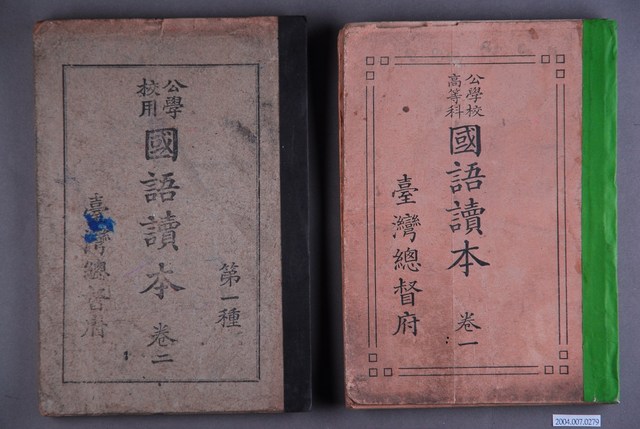 公學
校用
國語讀本 卷二
第一種
臺灣總督府
公學校
高等科
國語讀本 卷一
臺灣總督府
2004.007.0279